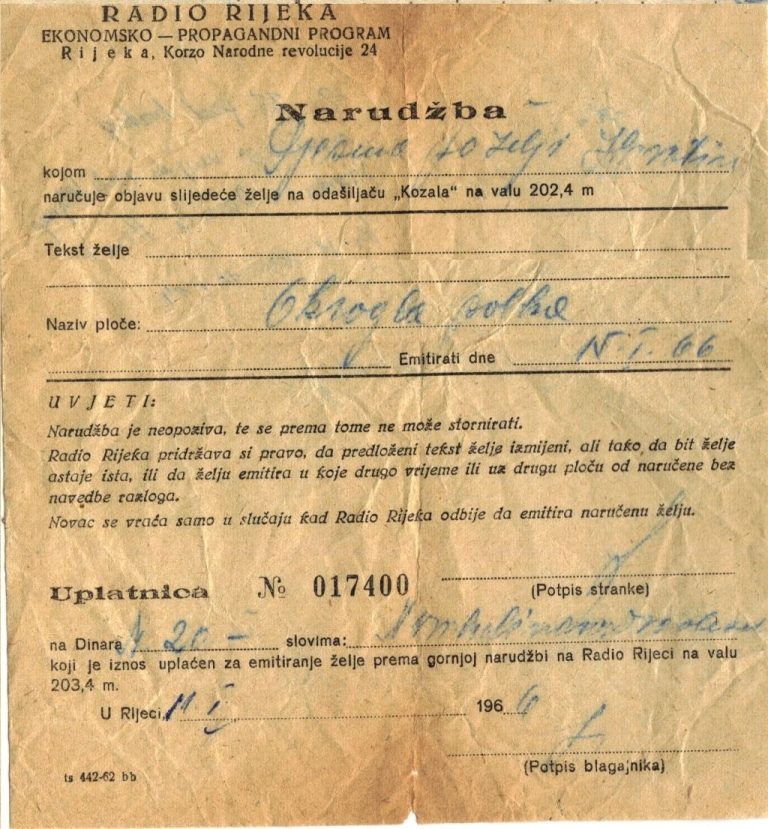 RADIO RIJEKA
EKONOMSKO — PROPAGANDNI PROGRAM
Rijeka, Korzo Narodne revolucije 24
Narudžba
kojom Pjesma po želji
naručuje objavu slijedeće želje na odašiljaču „Kozala“ na valu 202,4 m
Tekst želje
Naziv ploče: Okrogla polka
Emitirati dne 15. I. 66
UVJETI:
Narudžba je neopoziva, te se prema tome ne može stornirati.
Radio Rijeka pridržava si pravo, da predloženi tekst želje izmijeni, ali tako da bit želje
astaje ista, ili da želju emitira u koje drugo vrijeme ili uz drugu ploču od naručene bez
navedbe razloga.
Novac se vraća samo u slučaju kad Radio Rijeka odbije da emitira naručenu želju.
Uplatnica № 017400
(Potpis stranke)
na Dinara 20 — slovima:
koji je iznos uplaćen za emitiranje želje prema gornjoj narudžbi na Radio Rijeci na valu
203,4 m.
U Rijeci, 11 I 1966
(Potpis blagajnika)
ts 442-62 bb